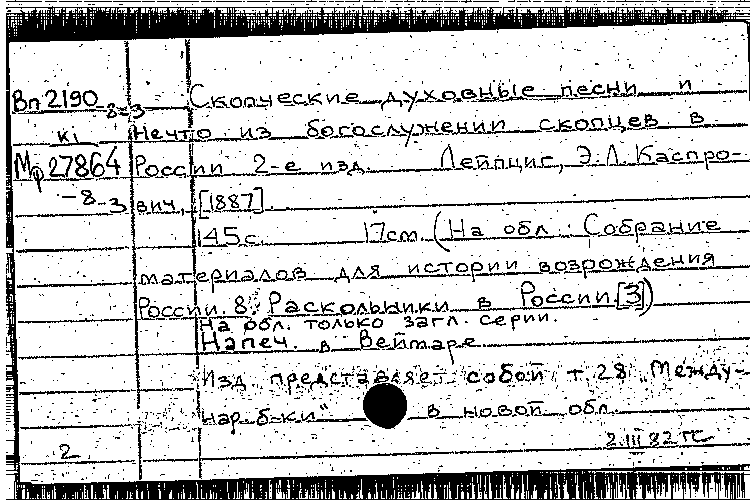 Вп 2190 -8=3 Скопческие духовные песни и
кі Нечто из богослужении скопцев в
Мф 27864 России 2-е изд. Лейпциг, Э.Л. Каспро-
-8 -3 вич, [1887].
145 с. 17 см. (На обл.: Собрание
материалов для истории возрождения
России. 8. Раскольники в России [3])
На обл. только загл. серии.
Напеч. в Веймаре
Изд представляет собой т. 28 "Между-
нар. б-ки" в новой обл.
2 2.III 82 ГС